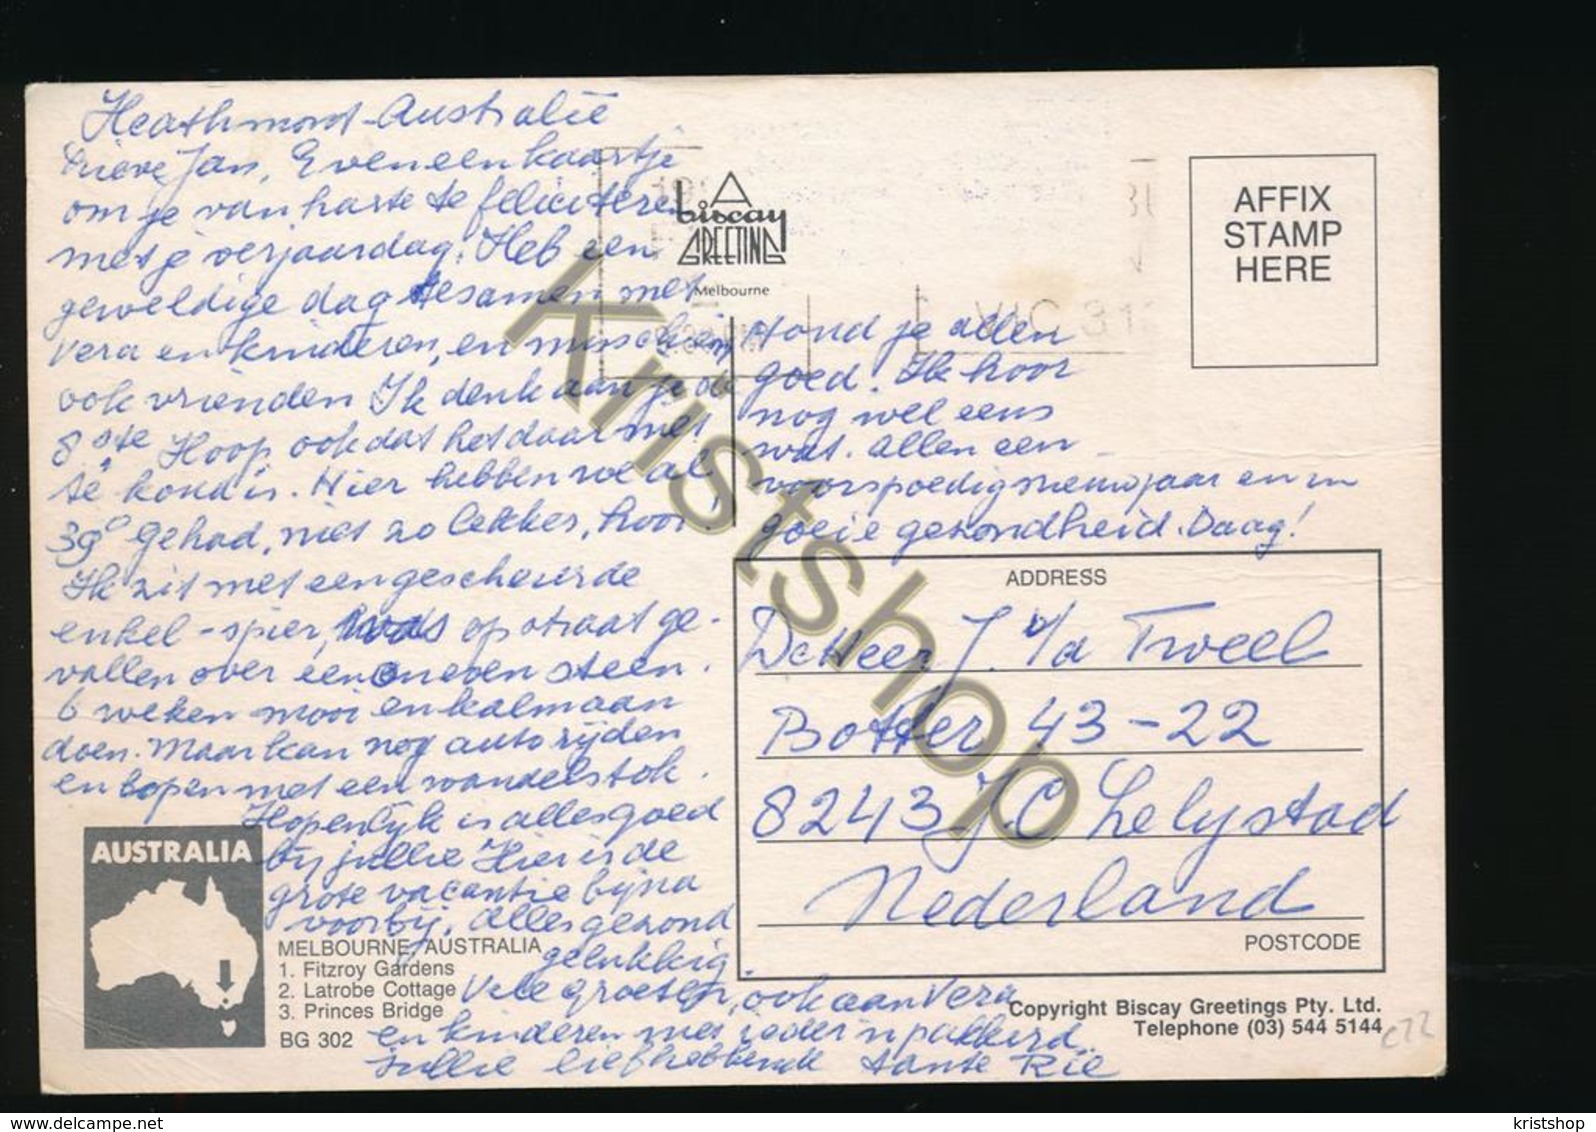 Heathmont - Australië
Lieve Jan, Even een kaartje
om je van harte te feliciteren
met je verjaardag. Heb een
geweldige dag tesamen met
Vera en kinderen, en misschien
ook vrienden Ik denk aan je de
8ste Hoop ook dat het daar niet
te koud is. Hier hebben we al
39° gehad, niet zo lekker, hoor!
Ik zit met een gescheurde
enkel-spier, was op straat ge-
vallen over een oneven steen.
6 weken mooi en kalm aan
doen. Maar kan nog auto rijden
en lopen met een wandelstok.
Hopenlijk is alles goed
bij jullie Hier is de
grote vacantie bijna
voorbij, alles gezond
gelukkig.
Vele groeten, ook aan Vera
en kinderen met ieder 'n pakkerd
Jullie liefhebbende tante Rie
Hond je allen
goed! Ik hoor
nog wel eens
wat. Allen een
voorspoedig nieuwjaar en in
goeie gezondheid. Daag!
biscay
GREETING
Melbourne
VIC 31
AFFIX
STAMP
HERE
ADDRESS
De Heer J. v/d Tweel
Botter 43-22
8243 J.C Lelystad
Nederland
POSTCODE
AUSTRALIA
MELBOURNE, AUSTRALIA
1. Fitzroy Gardens
2. Latrobe Cottage
3. Princes Bridge
BG 302
Copyright Biscay Greetings Pty. Ltd.
Telephone (03) 544 5144
c22
Kristshop
www.delcampe.net
kristshop